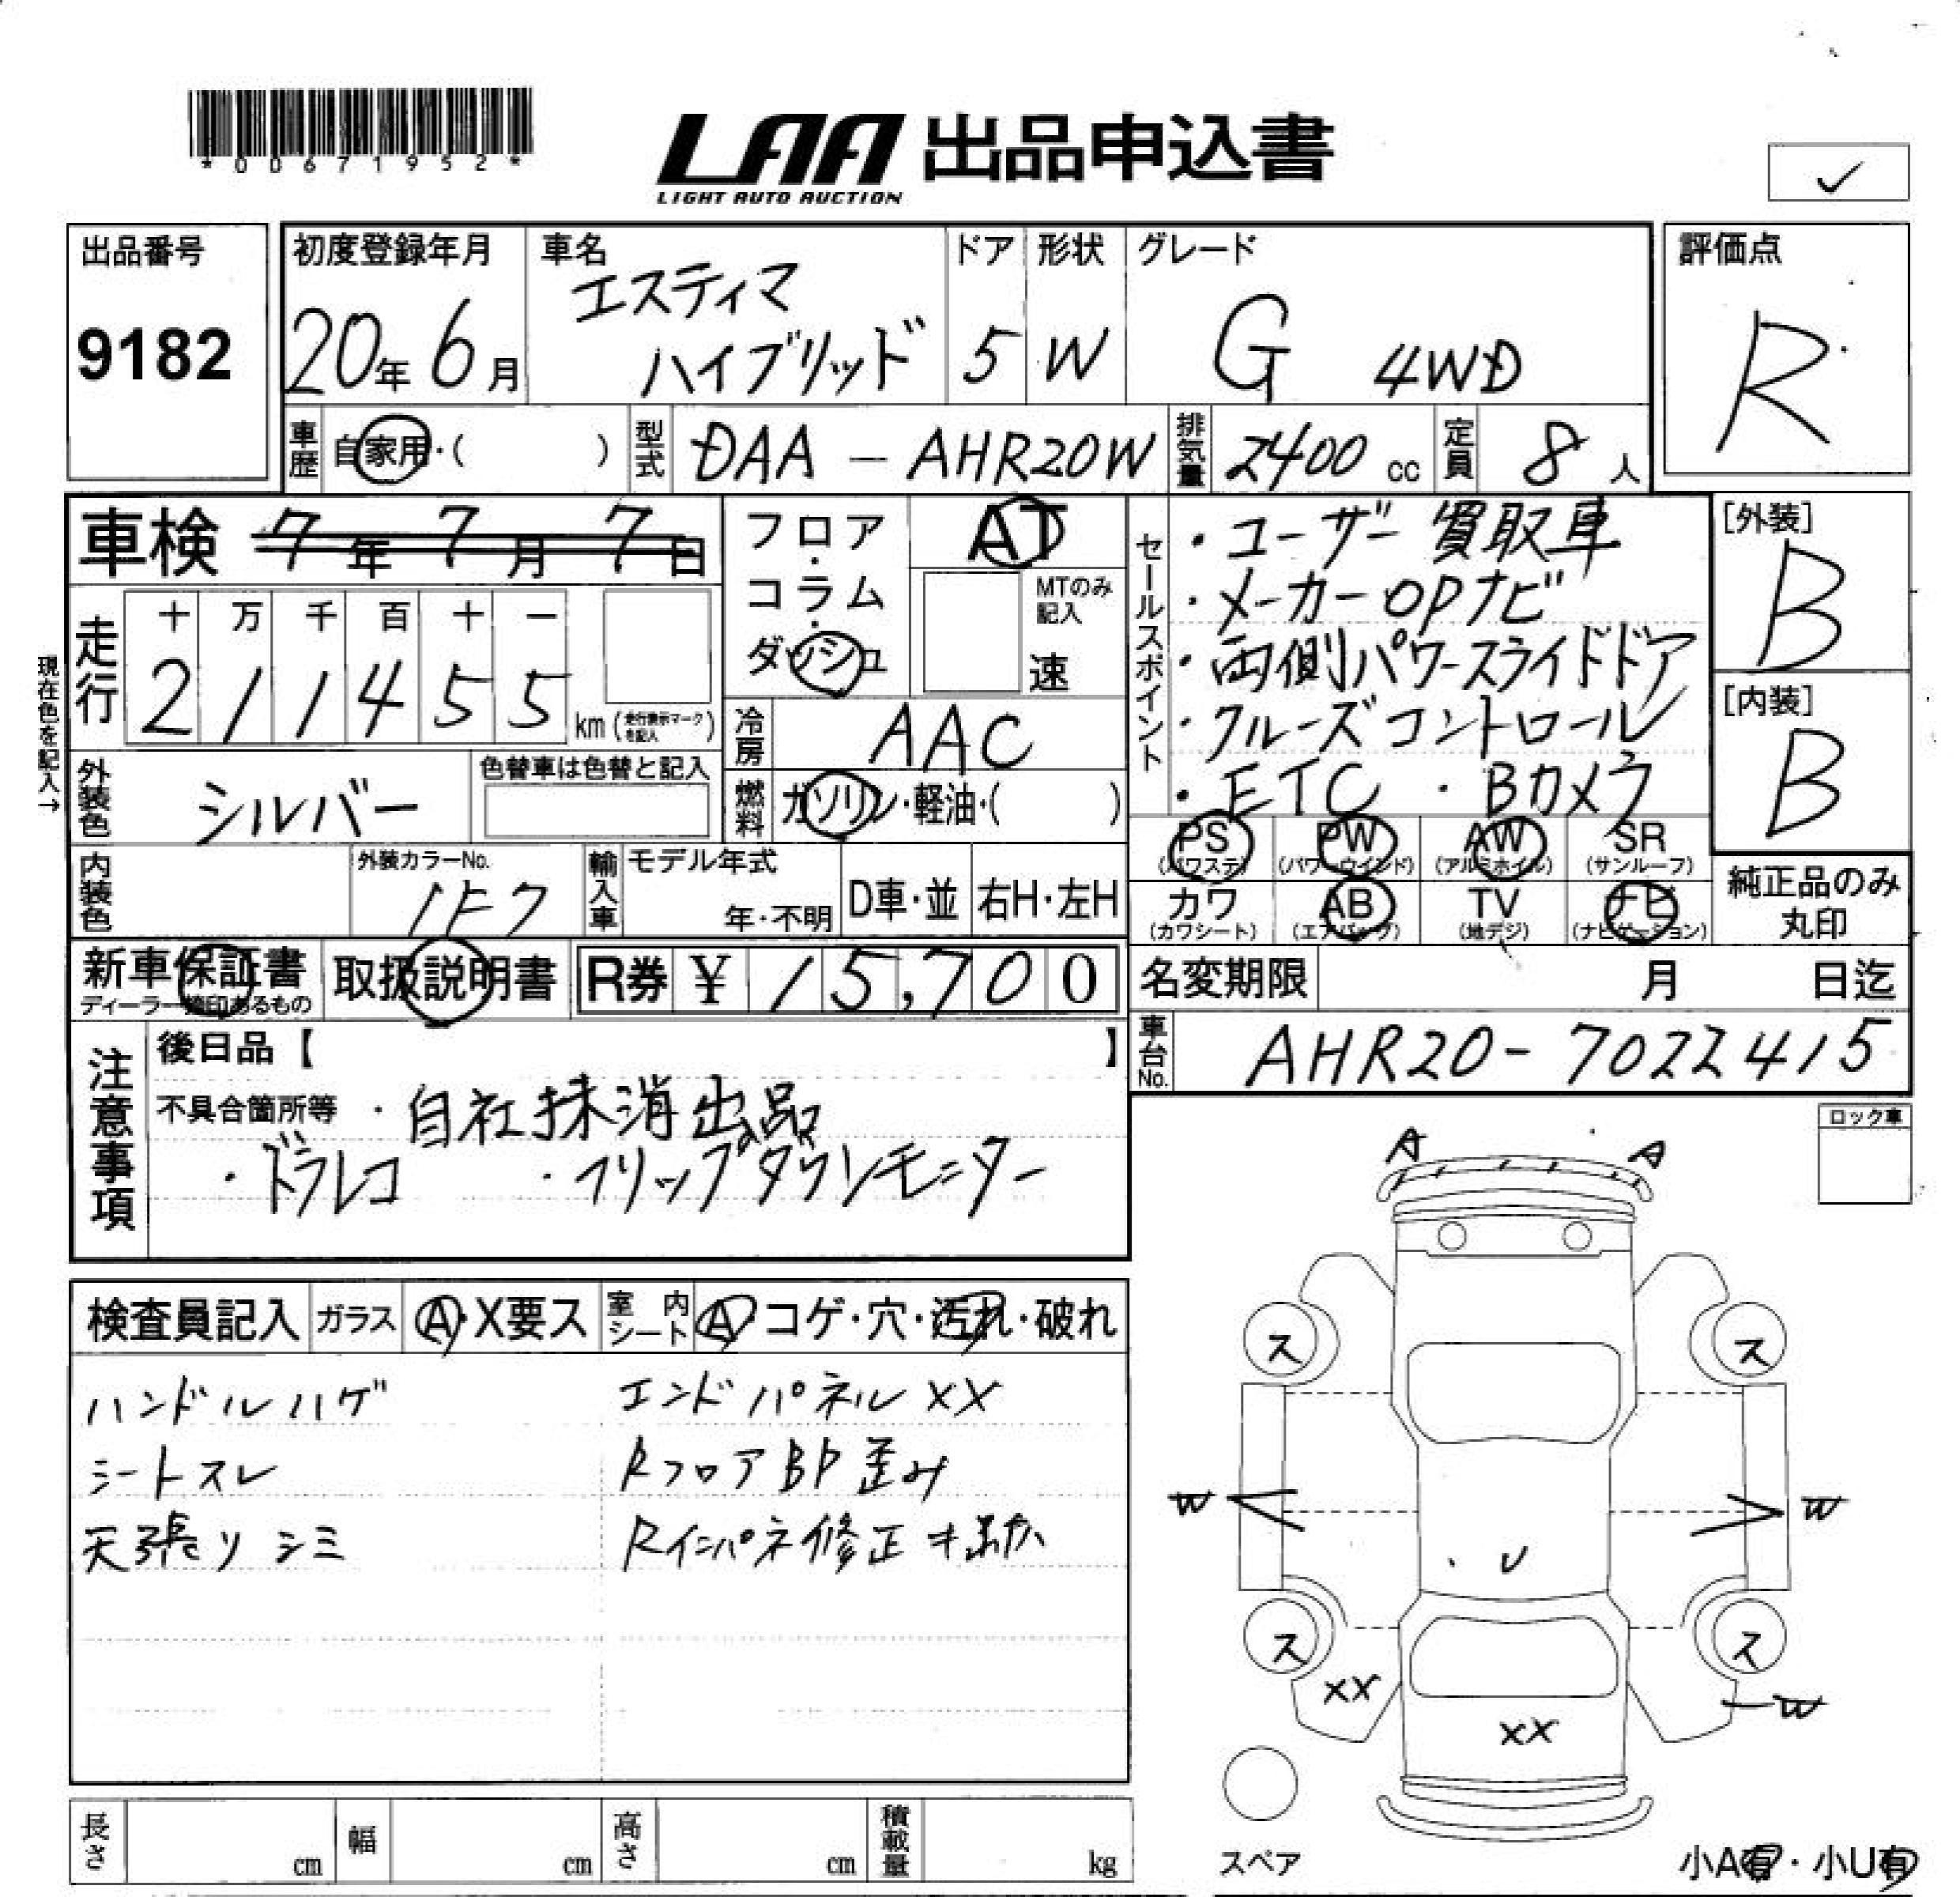 *00671952*
LAA 出品申込書
LIGHT AUTO AUCTION
✓
出品番号
9182
初度登録年月
20年6月
車名
エスティマ
ハイブリッド
ドア
5
形状
W
グレード
G 4WD
評価点
R
車歴 自家用・( )
型式 DAA-AHR20W
排気量 2400 cc
定員 8 人
車検 7年7月7日
フロア・コラム・ダッシュ
AT
MTのみ記入
速
セールスポイント
・ユーザー買取車
・メーカーOPナビ
・両側パワースライドドア
・クルーズコントロール
・ETC ・Bカメラ
[外装]
B
[内装]
B
現在色を記入→
走行
十 万 千 百 十 一
2 1 1 4 5 5 km (走行表示マークを記入)
冷房 AAC
外装色 シルバー
色替車は色替と記入
燃料 ガソリン・軽油・( )
PS (パワステ)
PW (パワーウインド)
AW (アルミホイル)
SR (サンルーフ)
カワ (カワシート)
AB (エアバッグ)
TV (地デジ)
ナビ (ナビゲーション)
純正品のみ丸印
内装色
外装カラーNo.
1F7
輸入車
モデル年式
年・不明
D車・並
右H・左H
新車保証書
ディーラー捺印あるもの
取扱説明書
R券 ¥ 15,700
名変期限 月 日迄
車台No. AHR20-7022415
注意事項
後日品【 】
不具合箇所等 ・自社抹消出品
・ドラレコ ・フリップダウンモニター
ロック車
検査員記入
ガラス A・X要ス
室内シート A コゲ・穴・汚れ・破れ
ハンドルハゲ エンドパネルXX
シートスレ RフロアBP歪み
天張りシミ Rインパネ修正
A A
ス ス
W W
U
ス ス
XX W
XX
スペア
小A有・小U有
長さ cm
幅 cm
高さ cm
積載量 kg